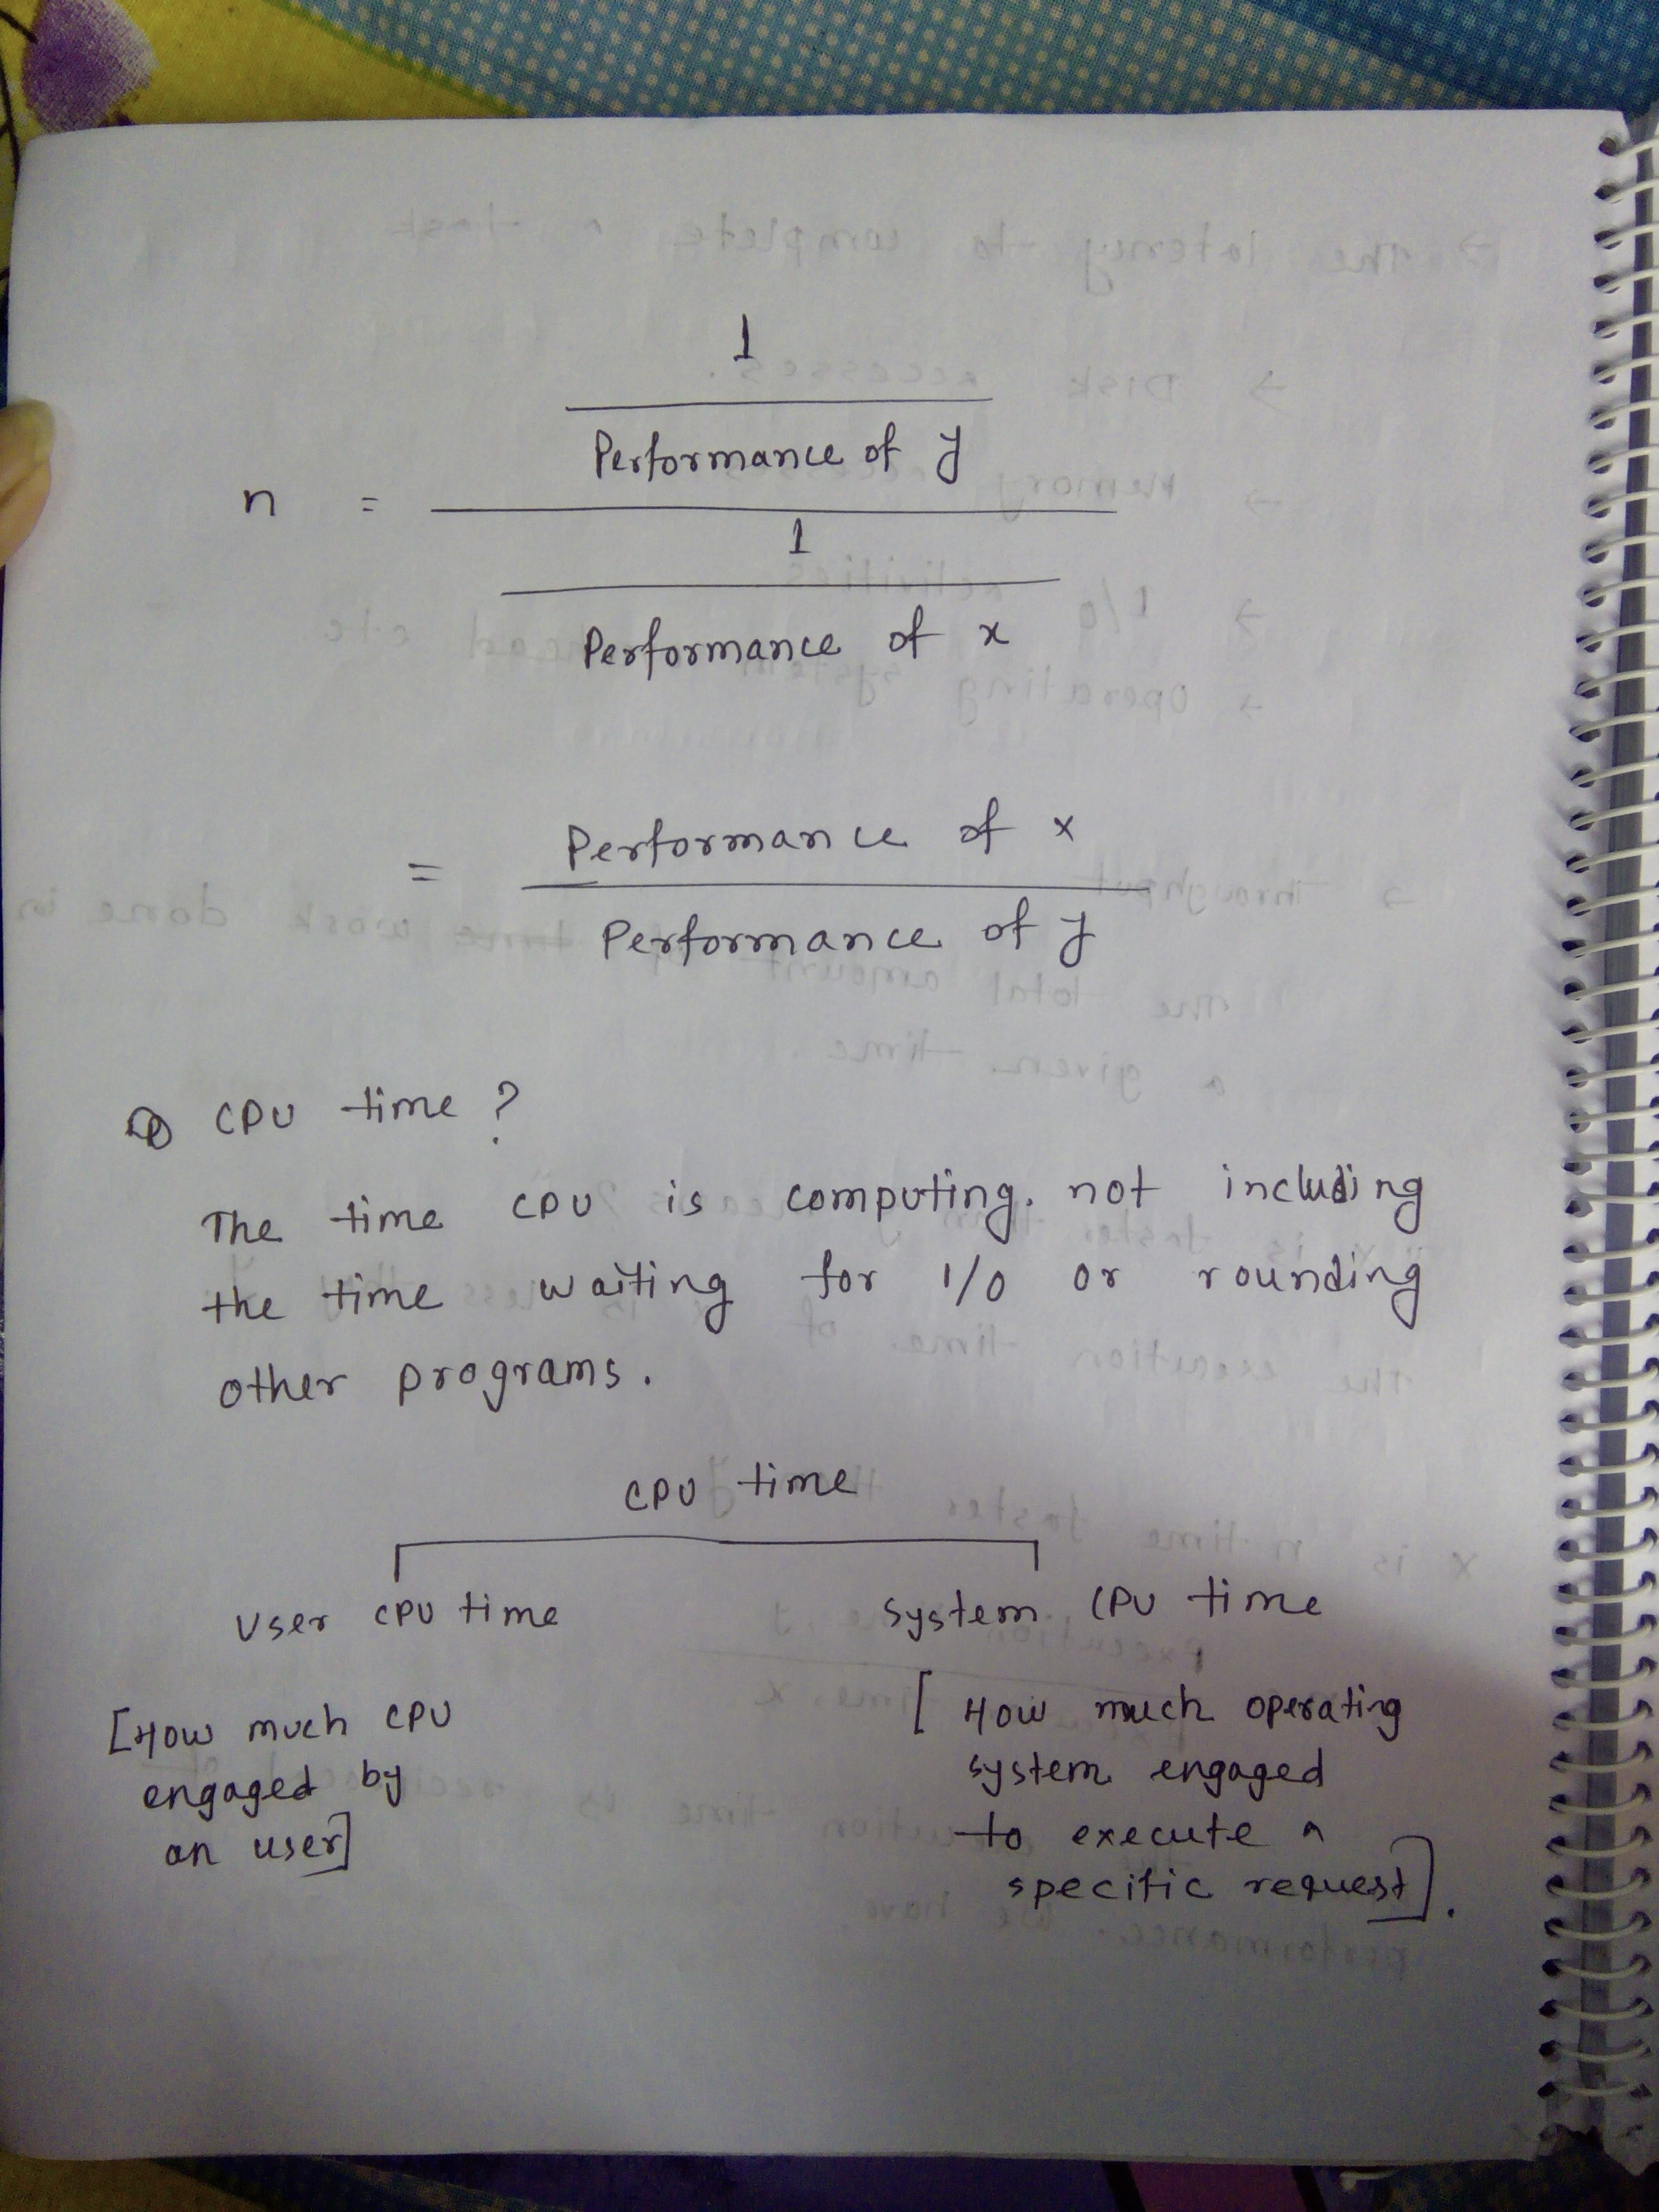 1
Performance of y
n =
1
Performance of x
= Performance of x
Performance of y
CPU time ?
The time CPU is computing. not including
the time waiting for I/O or rounding
other programs.
CPU time
User CPU time system CPU time
[How much CPU
engaged by
an user]
[ How much operating
system engaged
to execute a
specific request].